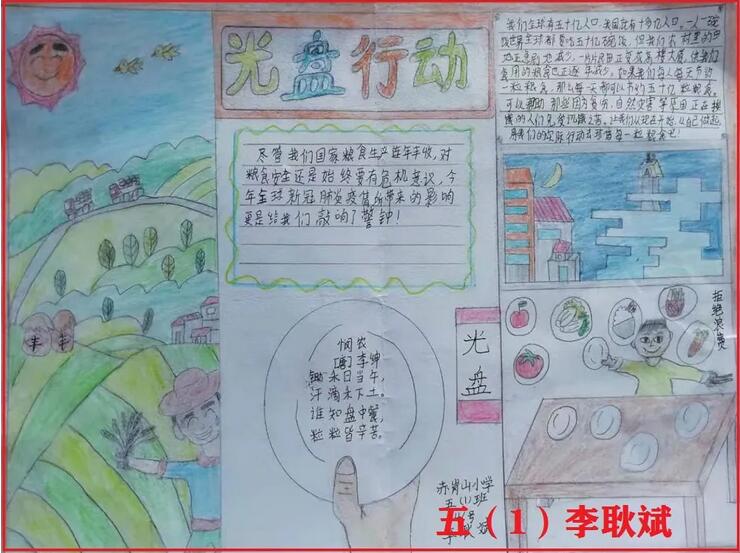 光盘行动
我们全球有五十亿人口，我国就有十多亿人口，一人一碗
饭世界全球都要吃五十亿碗饭，但我们农村里的田
食用的粮食也正逐年减少。如果我们每人每天节约
一粒粮食，那么每天都可以节约五十亿粒粮食，
可以救助那些因为贫穷、自然灾害等原因正在挨
饿的人们免受饥饿之苦。让我们从现在开始，从自己做起
用我们的实际行动去珍惜每一粒粮食吧！
尽管我们国家粮食生产连年丰收，对
粮食安全还是始终要有危机意识，今
年全球新冠肺炎疫情所带来的影响
更是给我们敲响了警钟！
悯农
[唐]李绅
锄禾日当午，
汗滴禾下土。
谁知盘中餐，
粒粒皆辛苦。
光盘
拒绝浪费
丰 丰
赤岗山小学
五（1）班
五（1）李耿斌